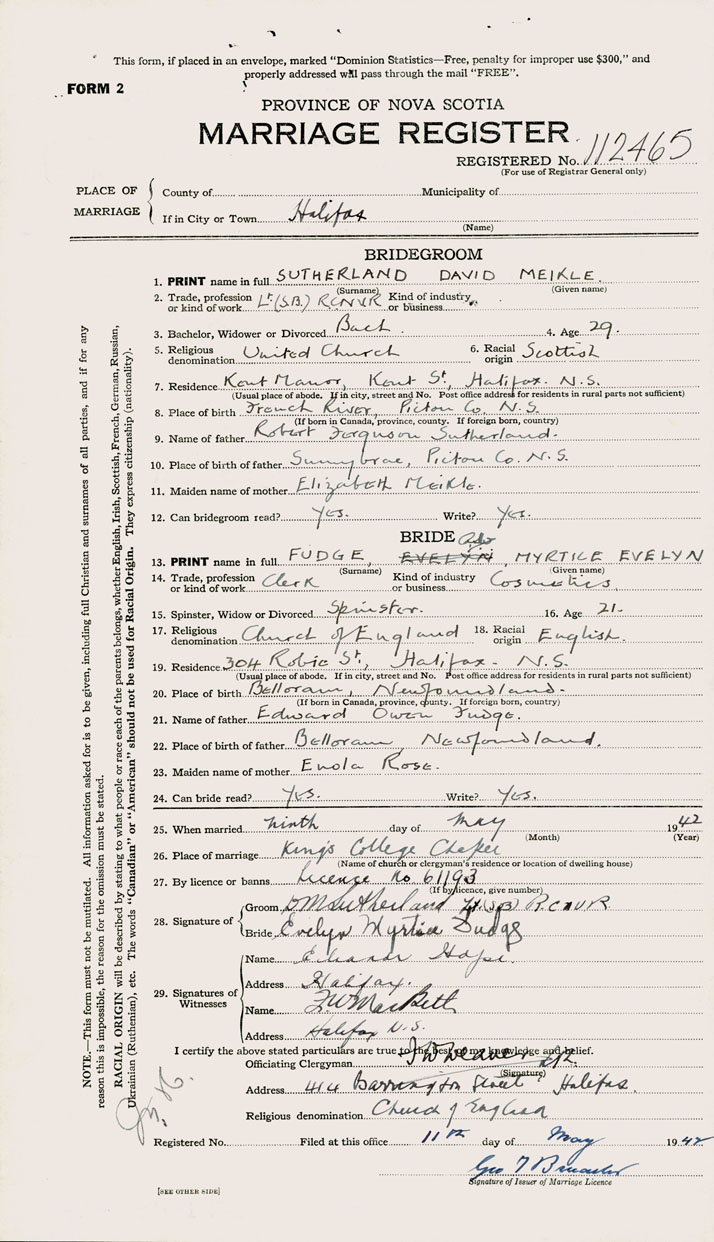 This form, if placed in an envelope, marked "Dominion Statistics—Free, penalty for improper use $300," and
properly addressed will pass through the mail "FREE".
FORM 2
PROVINCE OF NOVA SCOTIA
MARRIAGE REGISTER
REGISTERED No. 112465
(For use of Registrar General only)
PLACE OF MARRIAGE
County of Municipality of
If in City or Town Halifax
(Name)
BRIDEGROOM
1. PRINT name in full SUTHERLAND DAVID MEIKLE
(Surname) (Given name)
2. Trade, profession or kind of work Lt (S.B.) RCNVR Kind of industry or business
3. Bachelor, Widower or Divorced Bach 4. Age 29
5. Religious denomination United Church 6. Racial origin Scottish
7. Residence Kent Manor, Kent St, Halifax. N.S.
(Usual place of abode. If in city, street and No. Post office address for residents in rural parts not sufficient)
8. Place of birth French River, Pictou Co. N.S.
(If born in Canada, province, county. If foreign born, country)
9. Name of father Robert Ferguson Sutherland.
10. Place of birth of father Sunnybrae, Pictou Co. N.S.
11. Maiden name of mother Elizabeth Meikle.
12. Can bridegroom read? Yes. Write? Yes.
BRIDE
13. PRINT name in full FUDGE, EVELYN, MYRTICE EVELYN
(Surname) (Given name)
14. Trade, profession or kind of work Clerk Kind of industry or business Cosmetics
15. Spinster, Widow or Divorced Spinster. 16. Age 21.
17. Religious denomination Church of England 18. Racial origin English.
19. Residence 304 Robie St, Halifax. N.S.
(Usual place of abode. If in city, street and No. Post office address for residents in rural parts not sufficient)
20. Place of birth Belloram, Newfoundland.
(If born in Canada, province, county. If foreign born, country)
21. Name of father Edward Owen Fudge.
22. Place of birth of father Belloram, Newfoundland.
23. Maiden name of mother Enola Rose.
24. Can bride read? Yes. Write? Yes.
25. When married ninth day of May 1942
(Month) (Year)
26. Place of marriage King's College Chapel
(Name of church or clergyman's residence or location of dwelling house)
27. By licence or banns Licence No 61193
(If by licence, give number)
28. Signature of
Groom D M Sutherland Lt (SB) RCNVR
Bride Evelyn Myrtice Fudge
29. Signatures of Witnesses
Name Eleanor Hope.
Address Halifax.
Name F W MacBeth
Address Halifax N.S.
I certify the above stated particulars are true to the best of my knowledge and belief.
Officiating Clergyman
(Signature)
Address 414 Barrington Street Halifax.
Religious denomination Church of England
Registered No. Filed at this office 11th day of May 1942
Geo
Signature of Issuer of Marriage Licence
[SEE OTHER SIDE]
NOTE.—This form must not be mutilated. All information asked for is to be given, including full Christian and surnames of all parties, and if for any
reason this is impossible, the reason for the omission must be stated.
RACIAL ORIGIN will be described by stating to what people or race each of the parents belongs, whether English, Irish, Scottish, French, German, Russian,
Ukrainian (Ruthenian), etc. The words "Canadian" or "American" should not be used for Racial Origin. They express citizenship (nationality).